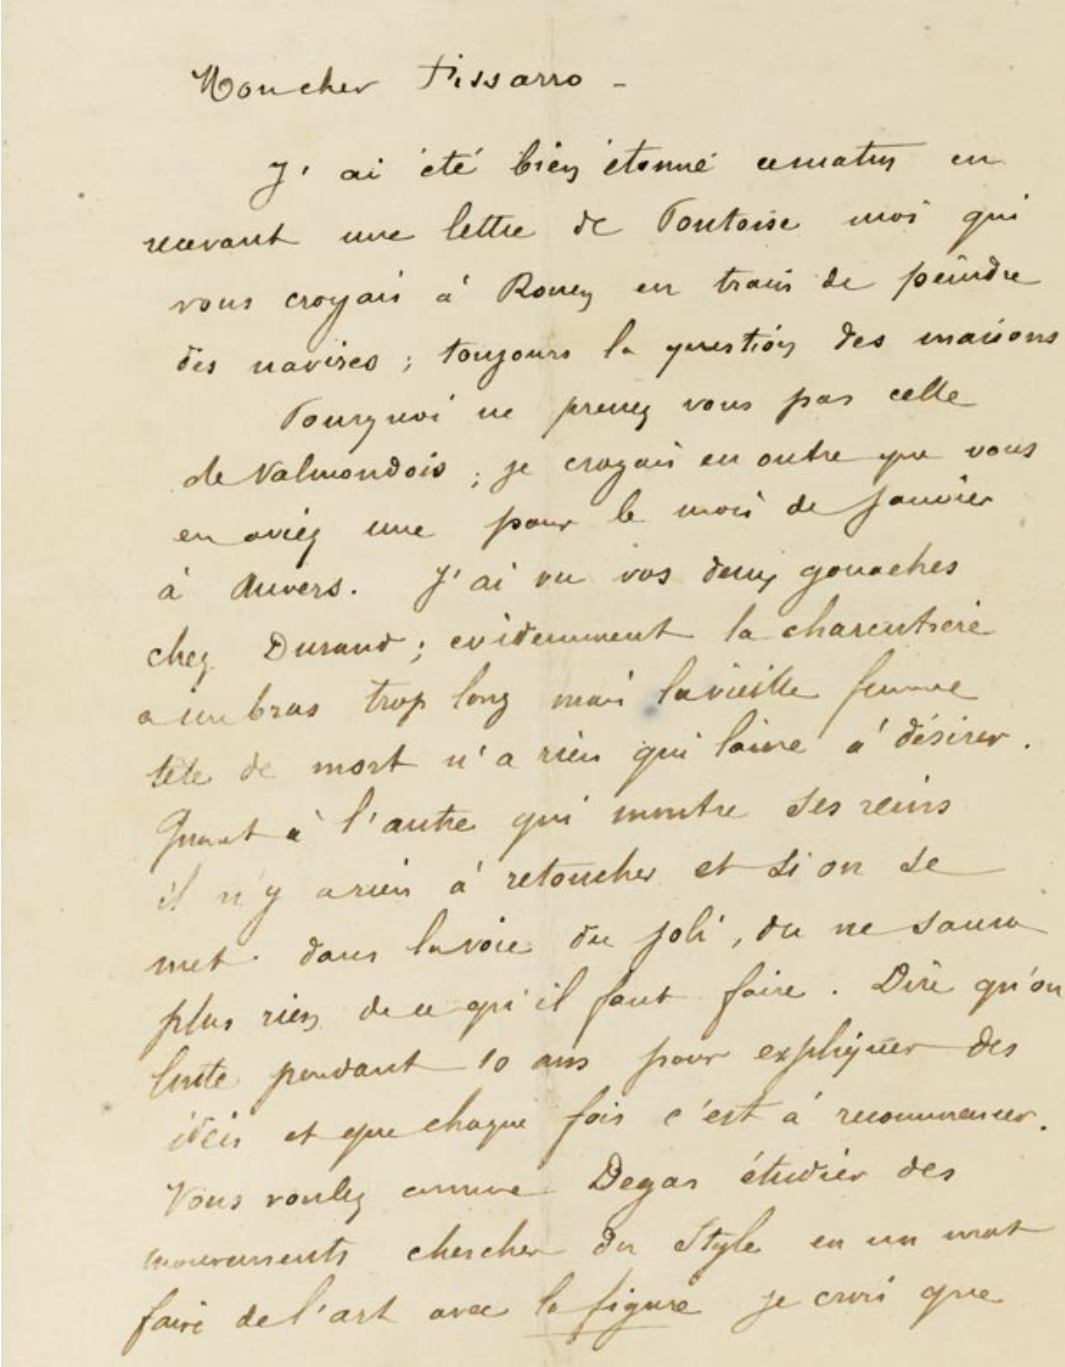 Mon cher Pissarro -
J'ai été bien étonné ce matin en
recevant une lettre de Pontoise moi qui
vous croyais à Rouen en train de peindre
des navires ; toujours la question des maisons
Pourquoi ne prenez vous pas celle
de Valmondois ; je croyais en outre que vous
en aviez une pour le mois de Janvier
à Auvers. J'ai vu vos deux gouaches
chez Durand ; evidemment la charcutière
a un bras trop long mais la vieille femme
tête de mort n'a rien qui laisse à désirer.
Quant à l'autre qui montre ses reins
il n'y a rien à retoucher et si on se
met dans la voie du joli, on ne saura
plus rien de ce qu'il faut faire. Dire qu'on
lutte pendant 10 ans pour expliquer des
idées et que chaque fois c'est à recommencer.
Vous voulez comme Degas étudier des
mouvements chercher du Style en un mot
faire de l'art avec la figure je crois que